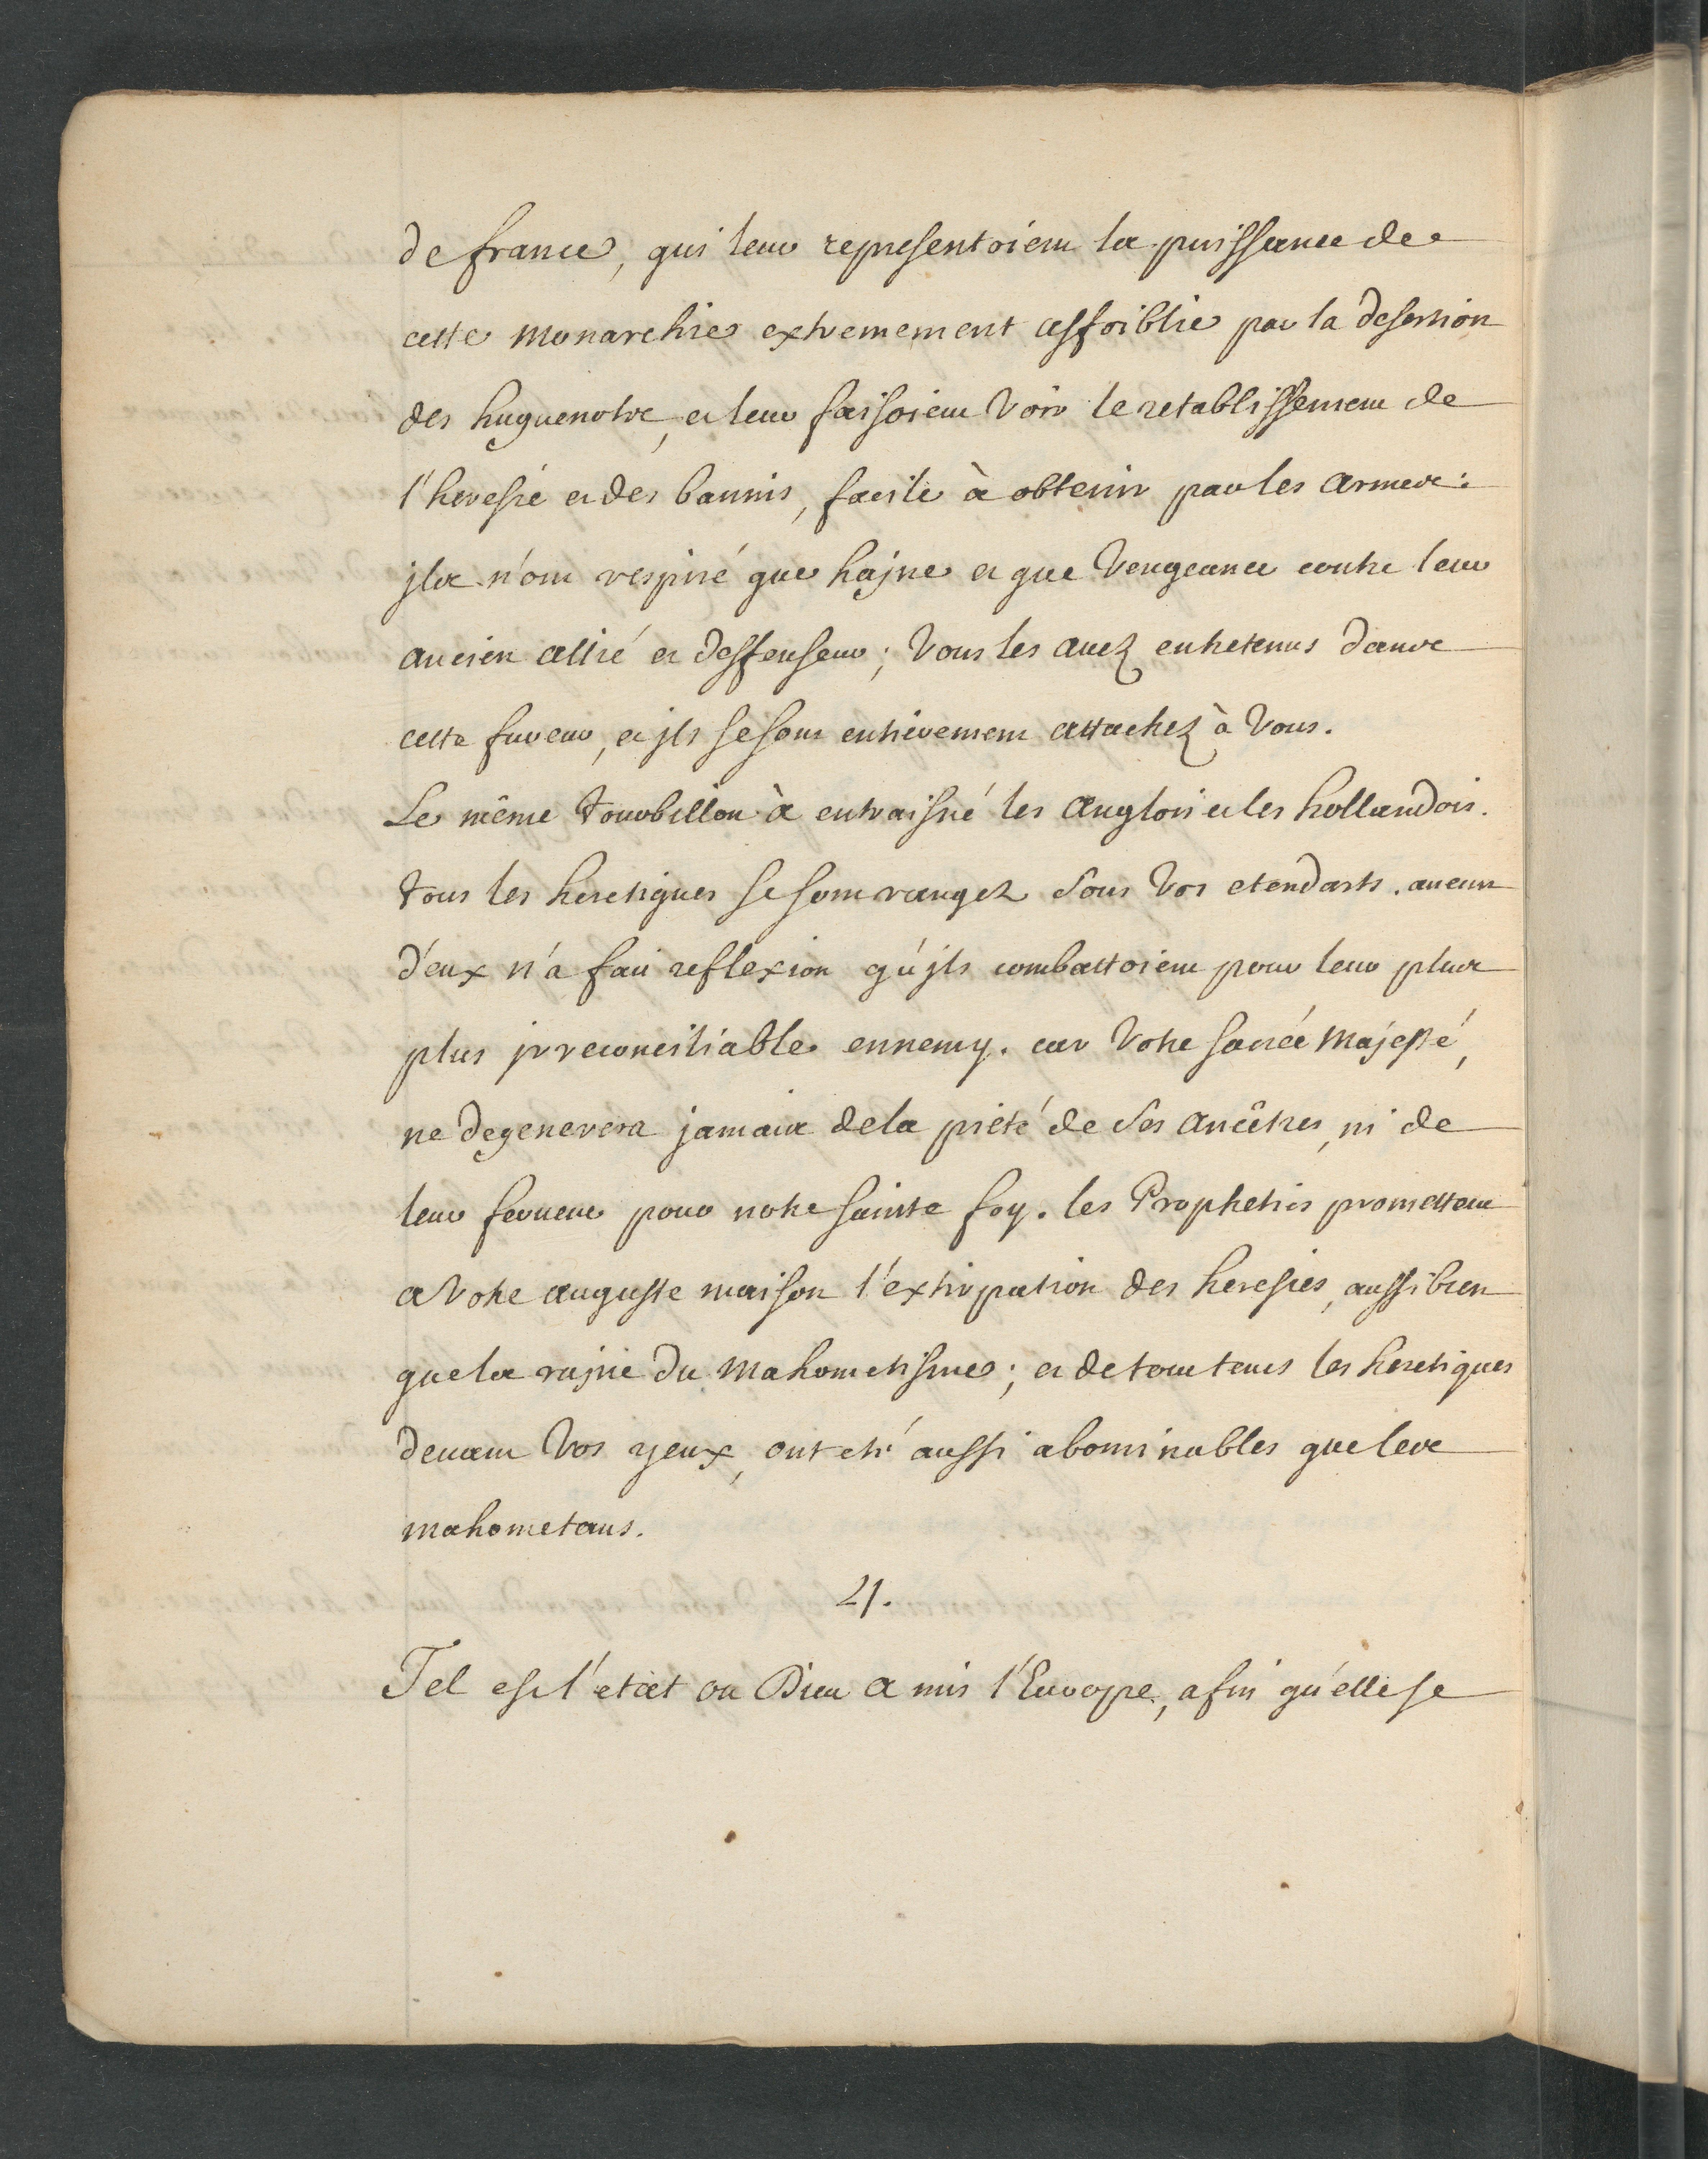 de france, qui leur representoient la puissance de
cette monarchie extremement affoiblie par la desertion
des huguenots, et leur faisoient voir le retablissement de
l'heresie et des bannis, facile à obtenir par les armes:
jls n'ont respiré que hajne et que vengeance contre leur
ancien allié et deffenseur; vous les auez entretenus dans
cette fureur, et jls se sont entierement attachez à vous.
Le même tourbillon à entraisné les anglois et les hollandois.
tous les heretiques se sont rangez sous vos etendarts. aucun
d'eux n'a fait reflexion qu'jls combattoient pour leur plus
plus jrreconciliable ennemy. car votre sacrée majesté,
ne degenerera jamais de la pieté de ses ancêtres, ni de
leur ferueur pour notre sainte foy. les Propheties promettent
a votre auguste maison l'extirpation des heresies, aussi bien
que la rujne du mahometisme; et de tout tems les heretiques
deuant vos yeux, ont eté aussi abominables que les
mahometans.
21.
Tel est l'etat ou Dieu a mis l'Europe, afin qu'elle se